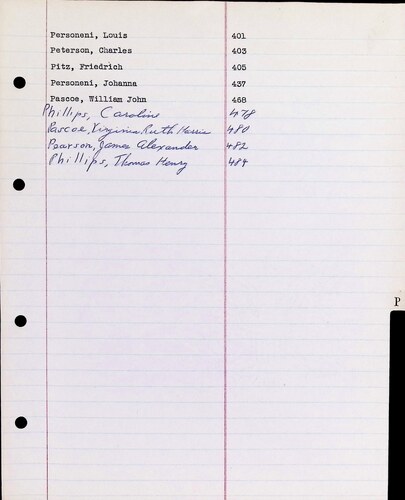 Personeni, Louis 401
Peterson, Charles 403
Pitz, Friedrich 405
Personeni, Johanna 437
Pascoe, William John 468
Phillips, Caroline 478
Pascoe, Virginia Ruth Harris 480
Pearson, James Alexander 482
Phillips, Thomas Henry 484
P